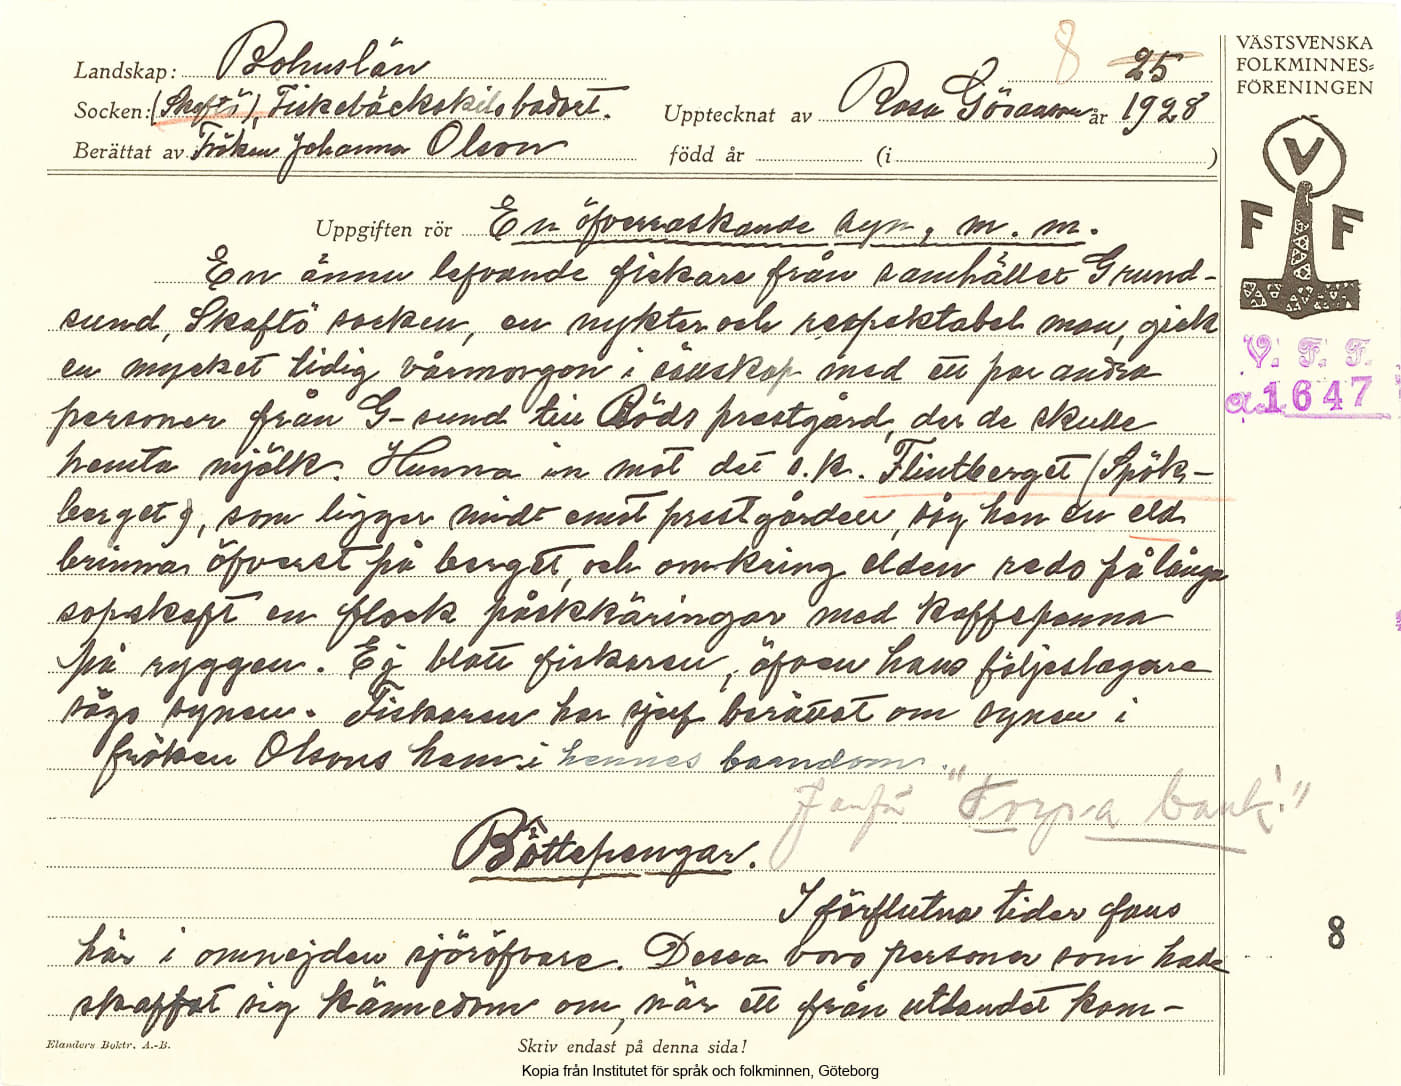 Landskap: Bohuslän
Socken: (Skaftö), Fiskebäckskils badort.
Berättat av Fröken Johanna Olson
8 25
Upptecknat av Rosa Göransson år 1928
född år (i )
VÄSTSVENSKA
FOLKMINNES-
FÖRENINGEN
V
F F
V. F. F.
1647
Uppgiften rör En öfverraskande syn, m. m.
En ännu lefvande fiskare från samhället Grund-
sund, Skaftö socken, en nykter och respektabel man, gick
en mycket tidig vårmorgon i sällskap med ett par andra
personer från G-sund till Röds prestgård, der de skulle
hemta mjölk. Hunna in mot det s.k. Flintberget (Spök-
berget), som ligger midt emot prestgården, såg han en eld
brinna öfverst på berget, och omkring elden redo på långa
sopskaft en flock påskkäringar med kaffepanna
på ryggen. Ej blott fiskaren, öfven hans följeslagare
sågo synen. Fiskaren har sjelf berättat om synen i
fröken Olsons hem i hennes barndom.
Jämför "Torpa bank!"
Böttepengar.
I förflutna tider fans
här i omnejden sjöröfvare. Dessa voro personer som hade
skaffat sig kännedom om, när ett från utlandet kom-
8
Elanders Boktr. A.-B.
Skriv endast på denna sida!
Kopia från Institutet för språk och folkminnen, Göteborg